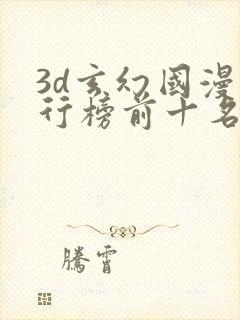 3d玄幻國漫
行榜前十名
騰霄